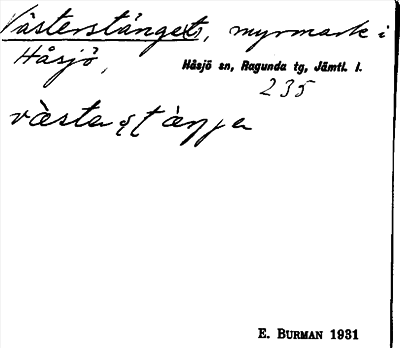 Västerstänget, myrmark i
Håsjö,
Håsjö sn, Ragunda tg, Jämtl. l.
235
E. BURMAN 1931